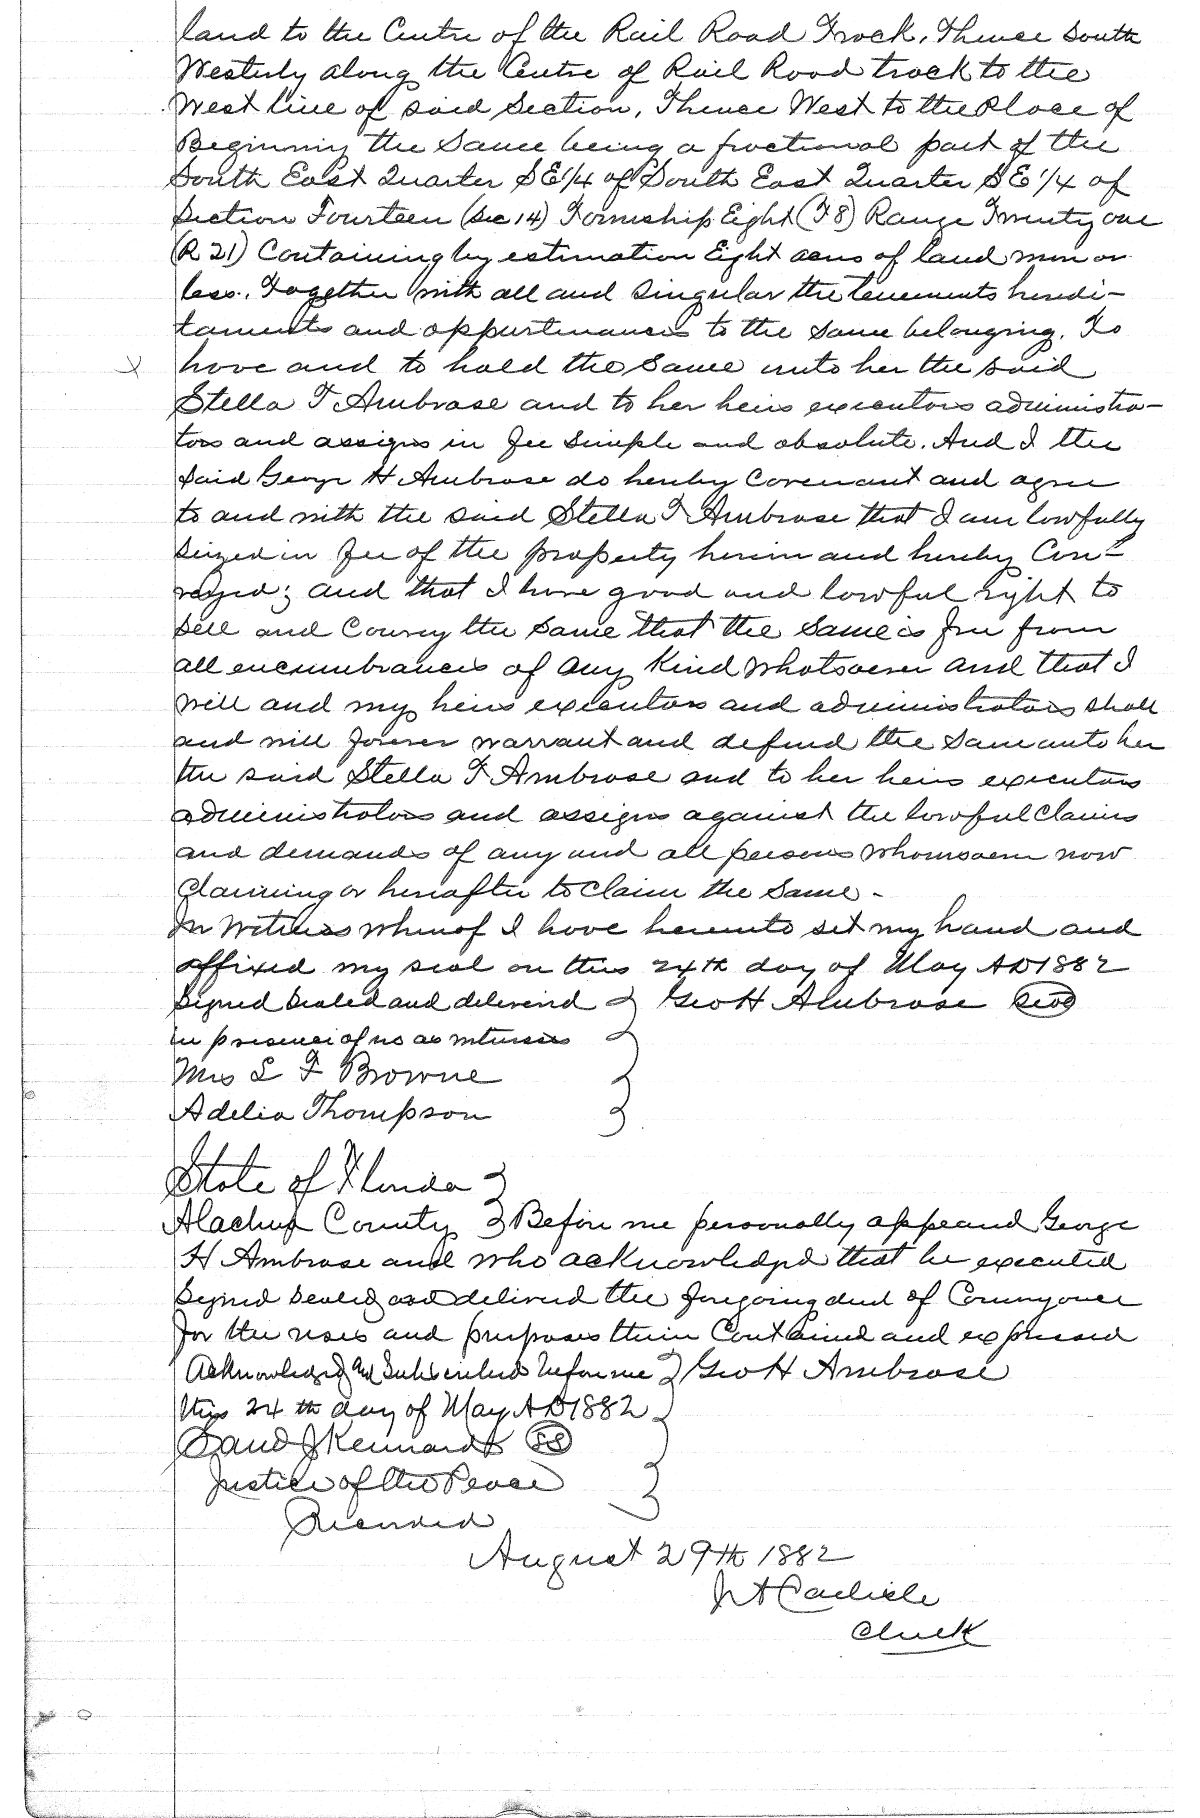 land to the Centre of the Rail Road Track, Thence South
Westerly along the Centre of Rail Road track to the
West line of said Section, Thence West to the Place of
Beginning the Same being a fractional part of the
South East Quarter SE 1/4 of South East Quarter SE 1/4 of
Section Fourteen (Sec 14) Township Eight (T 8) Range Twenty one
(R 21) Containing by estimation Eight acres of land more or
less. Together with all and singular the tenements heredi-
taments and appurtenances to the same belonging. To
have and to hold the Same unto her the said
Stella F Ambrose and to her heirs executors administra-
tors and assigns in fee simple and absolute. And I the
said George H Ambrose do hereby Covenant and agree
to and with the said Stella F Ambrose that I am lawfully
seized in fee of the property herein and hereby Con-
veyed; and that I have good and lawful right to
sell and Convey the Same that the Same is free from
all encumbrances of any Kind whatsoever and that I
will and my heirs executors and administrators shall
and will forever warrant and defend the Same unto her
the said Stella F Ambrose and to her heirs executors
administrators and assigns against the lawful Claims
and demands of any and all persons whomsoever now
Claiming or hereafter to Claim the Same -
In Witness whereof I have hereunto set my hand and
affixed my seal on this 24th day of May AD 1882
Signed Sealed and delivered Geo H Ambrose Seal
in presence of us as witnesses
Mrs L F Browne
Adelia Thompson
State of Florida
Alachua County Before me personally appeared George
H Ambrose and who acknowledged that he executed
Signed Sealed and delivered the foregoing deed of Conveyance
for the uses and purposes therein Contained and expressed
Acknowledged and Subscribed before me Geo H Ambrose
this 24th day of May AD 1882
J Kennard SS
Justice of the Peace
Recorded
August 29th 1882
J A Carlisle
Clerk